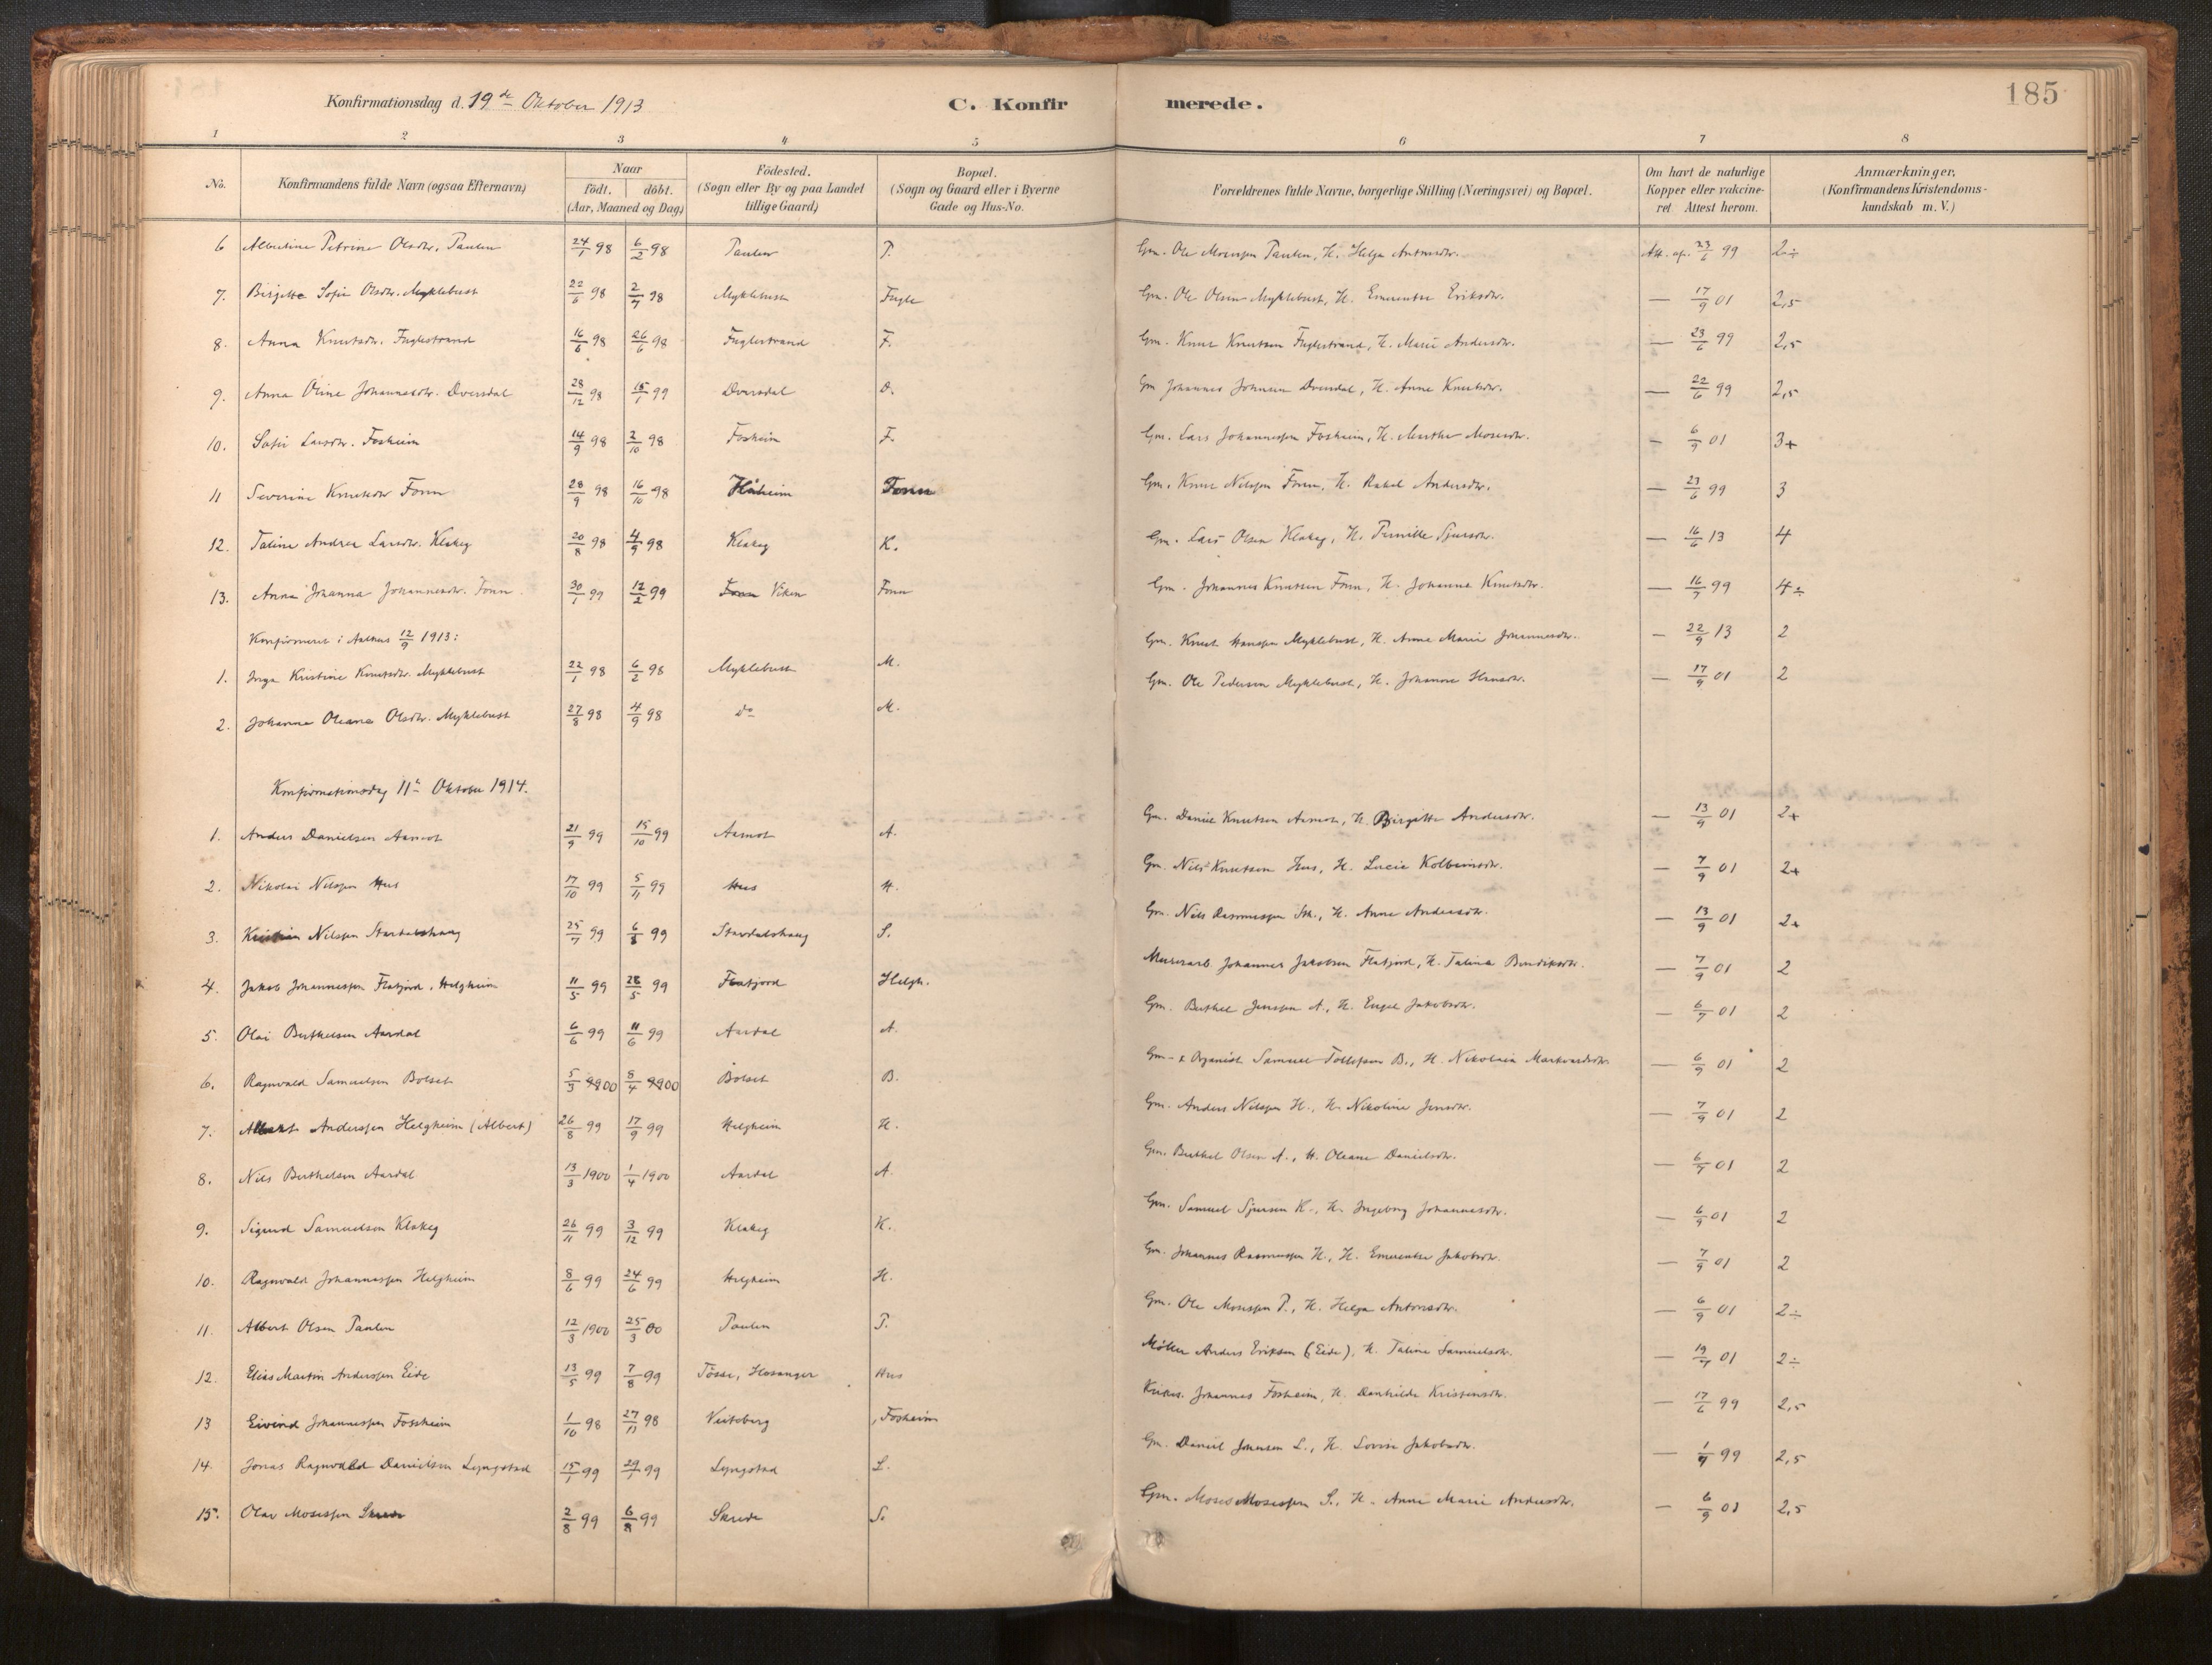 185
Konfirmationsdag d. 19de Oktober 1913 C. Konfirmerede.
1 2 3 4 5 6 7 8
No. Konfirmandens fulde Navn (ogsaa Efternavn) Naar födt. döbt. (Aar, Maaned og Dag) Födested. (Sogn eller By og paa Landet tillige Gaard) Bopæl. (Sogn og Gaard eller i Byerne Gade og Hus-No. Forældrenes fulde Navne, borgerlige Stilling (Næringsvei) og Bopæl. Om havt de naturlige Kopper eller vakcineret Attest herom. Anmærkninger, (Konfirmandens Kristendomskundskab m. V.)
6 Albertine Petrine Olsdtr. Paulen 24/1 98 6/2 98 Paulen P. Gm. Ole Monssen Paulen, H. Helga Antonsdtr. Att. af. 23/6 99 2÷
7. Birgitte Sofie Olsdtr. Myklebust 22/6 98 2/7 98 Myklebust Fugle Gm. Ole Olsen Myklebust, H. Emerentse Eriksdtr. — 17/9 01 2,5
8. Anna Knutsdtr. Fuglestrand 16/6 98 26/6 98 Fuglestrand F. Gm. Knut Knutsen Fuglestrand, H. Marie Andersdtr. — 23/6 99 2,5
9. Anna Oline Johannesdtr. Dversdal 28/12 98 15/1 99 Dversdal D. Gm Johannes Johnsen Dversdal, H. Anne Knutsdtr. — 22/6 99 2,5
10. Sofie Larsdtr. Fosheim 14/9 98 2/10 98 Fosheim F. Gm. Lars Johannessen Fosheim, H. Marthe Mosesdtr. — 6/9 01 3+
11 Severine Knutsdtr Fonn 28/9 98 16/10 98 Håheim Fonn Gm. Knut Nilssen Fonn, H. Rakel Andersdtr. — 23/6 99 3
12. Taline Andrea Larsdtr. Klakeg 20/8 98 4/9 98 Klakeg K. Gm. Lars Olsen Klakeg, H. Pernille Sjursdtr. — 16/6 13 4
13. Anna Johanna Johannesdtr. Fonn 30/1 99 12/2 99 Fonn Viken Fonn Gm. Johannes Knutsen Fonn, H. Johanne Knutsdtr. — 16/9 99 4÷
Konfirmeret i Aarhus 12/9 1913:
1. Inga Kristine Knutsdtr. Myklebust 22/1 98 6/2 98 Myklebust M. Gm. Knut Hanssen Myklebust, H. Anne Marie Johannesdtr. — 22/9 13 2
2. Johanna Oleane Olsdtr. Myklebust 27/8 98 4/9 98 Do M. Gm. Ole Pedersen Myklebust, H. Johanne Hansdtr. — 17/9 01 2
Konfirmationsdag 11te Oktober 1914.
1. Anders Danielsen Aamot 21/9 99 15/10 99 Aamot A. Gm. Daniel Knutsen Aamot, H. Birgitte Andersdtr. — 13/9 01 2+
2. Nikolai Nilssen Hus 17/10 99 5/11 99 Hus H. Gm. Nils Knutsen Hus, H. Lucie Kolbeinsdtr. — 7/9 01 2+
3. Kristian Nilssen Stardalshaug 25/7 99 6/8 99 Stardalshaug S. Gm. Nils Rasmussen Sth., H. Anne Andersdtr. — 13/9 01 2+
4. Jakob Johannessen Flatjord, Helgheim 11/5 99 28/5 99 Flatjord Helgh. Murerarb. Johannes Jakobsen Flatjord, H. Talina Bendiksdtr. — 7/9 01 2
5. Olai Berthelsen Aardal 6/6 99 11/6 99 Aardal A. Gm. Berthel Jenssen A., H. Engel Jakobsdtr. — 6/7 01 2
6. Ragnvald Samuelsen Bolset 5/3 9900 8/4 9900 Bolset B. Gm. & Organist Samuel Tollefsen B., H. Nikolaia Markvardsdtr. — 6/9 01 2
7. Albert Anderssen Helgheim (Albert) 26/8 99 17/9 99 Helgheim H. Gm. Anders Nilssen H., H. Nikoline Jensdtr. — 7/9 01 2
8. Nils Berthelsen Aardal 13/3 1900 1/4 1900 Aardal A. Gm. Berthel Olsen A., H. Oleane Danielsdtr. — 6/7 01 2
9. Sigurd Samuelsen Klakeg 26/11 99 3/12 99 Klakeg K. Gm. Samuel Sjursen K., H. Ingeborg Johannesdtr. — 6/9 01 2
10. Ragnvald Johannessen Helgheim 8/6 99 24/6 99 Helgheim H. Gm. Johannes Rasmussen H., H. Emerentse Jakobsdtr. — 7/9 01 2
11. Albert Olsen Paulen 12/3 1900 25/3 00 Paulen P. Gm. Ole Monssen P., H. Helga Antonsdtr. — 6/9 01 2÷
12. Elias Martin Anderssen Eide 13/5 99 7/8 99 Tösse, Hosanger Hus Möller Anders Eriksen (Eide), H. Taline Samuelsdtr. — 19/7 01 2÷
13 Eivind Johannessen Fossheim 1/10 98 27/11 98 Veiteberg Fosheim Johannes Fosheim, H. Danhilda Kristensdtr. — 17/6 99 2,5
14. Jonas Ragnvald Danielsen Lyngstad 15/1 99 29/1 99 Lyngstad L. Gm. Daniel Jonssen L., H. Lovise Jakobsdtr. — 1/9 99 2,5
15. Olav Mosessen Skrede 2/8 99 6/8 99 Skrede S. Gm. Moses Mosessen S., H. Anne Marie Andersdtr. — 6/9 01 2,5